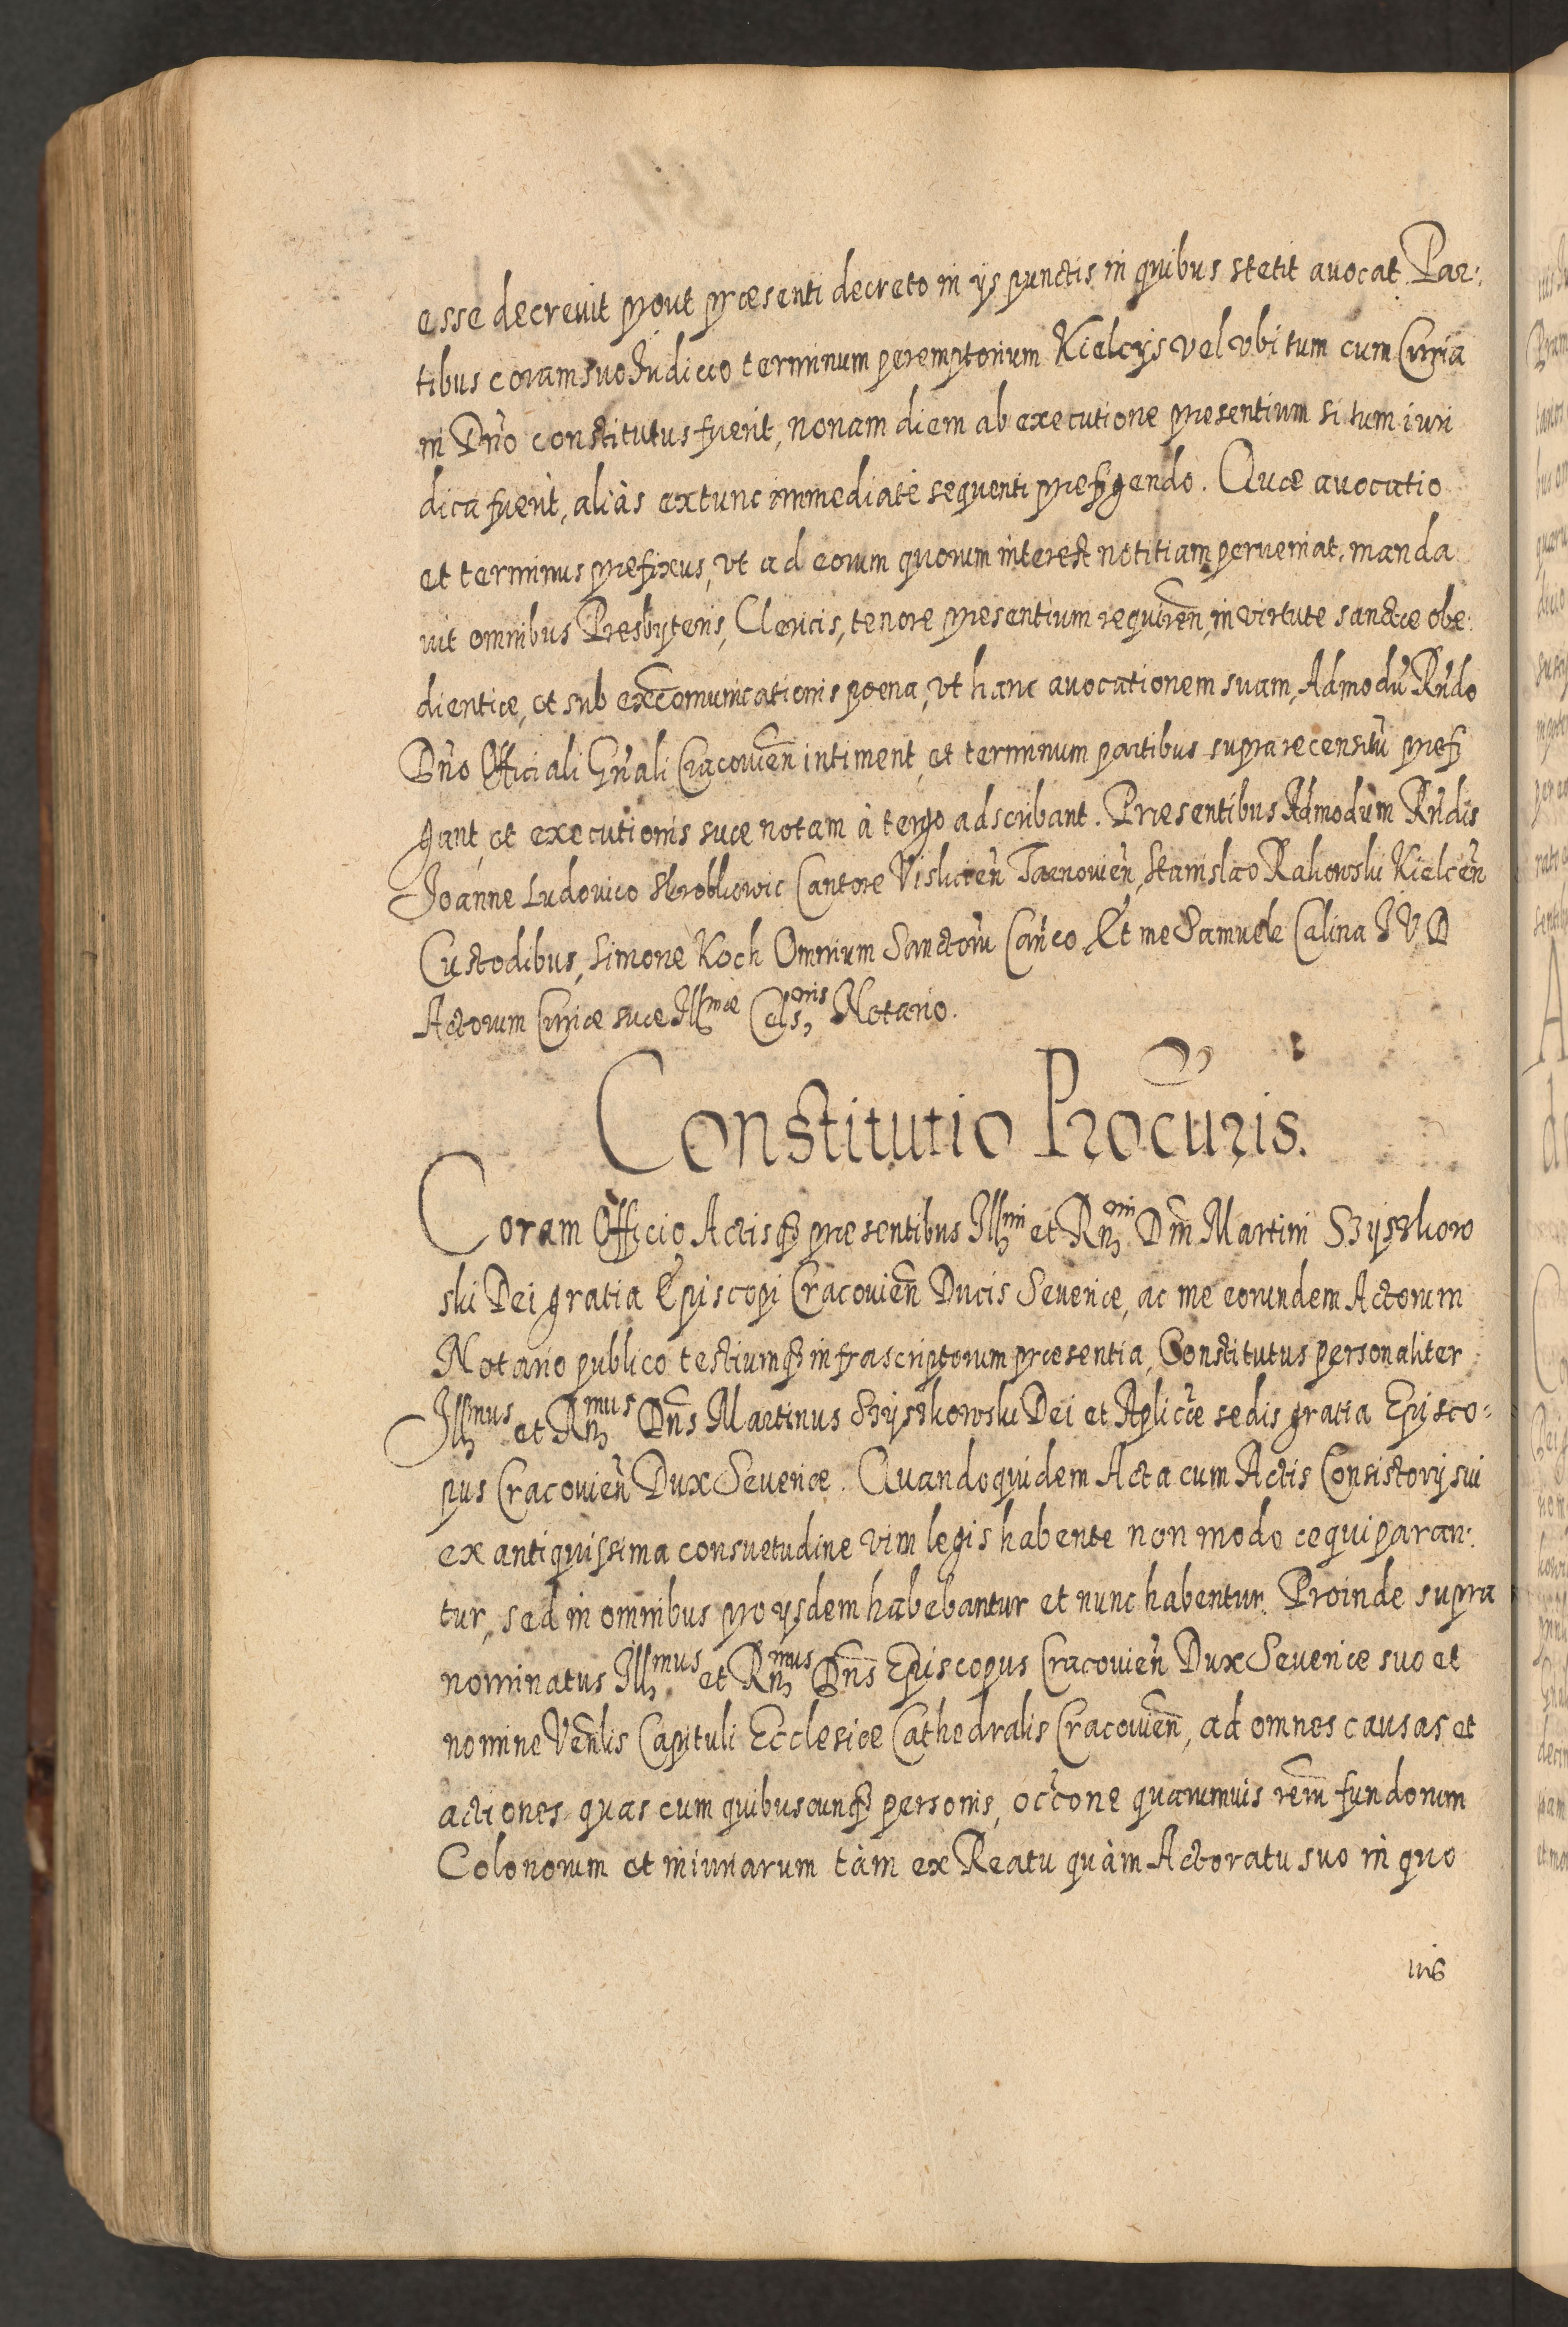 esse decrevit prout præsenti decreto in ijs punctis in quibus stetit avocat. Par:
tibus coram suo Iudicio terminum peremptorium Kielcijs vel vbi tum cum Curia
in Dn̄o constitutus fuerit, nonam diem ab executione presentium si tum iuri
dica fuerit, aliàs extunc immediatè sequenti prefigendo. Quæ avocatio
et terminus prefixus, vt ad eorum quorum interest notitiam perveniat, manda
vit omnibus Presbyteris, Clericis, tenore presentium requiren̄, in virtute sanctæ obe:
dientiæ, et sub excōmunicationis poena, vt hanc avocationem suam, Admodū Rn̄do
Dn̄o Officiali Gn̄ali Cracovien̄ intiment, et terminum partibus supra recensitū prefi
gant, et executionis suæ notam à tergo adscribant. Præsentibus Admodum Rn̄dis
Joanne Ludovico Skrobkowic Cantore Vislicien̄ Tarnovien̄, Stanislao Rakowski Kielcen̄
Custodibus, Simone Koch Omnium Sanctorū Can̄co Et me Samuele Calina I V D
Actorum Curiæ suæ Illmæ Cels,onis Notario.
Constitutio Procūris.
Coram Officio Actisq̃ presentibus Illmi et Rnmi Dn̄i Martini Szyszkow
ski Dei gratia Episcopi Cracovien̄ Ducis Severiæ, ac me eorundem Actorum
Notario publico testiumq̃ infrascriptorum præsentia, Constitutus personaliter
Illmus et Rnmus Dn̄s Martinus Szyszkowski Dei et Aplicæ sedis gratia Episco:
pus Cracovien̄ Dux Severiæ. Quandoquidem Acta cum Actis Consistorij sui
ex antiquissima consuetudine vim legis habente non modo æquiparan:
tur, sed in omnibus pro ijsdem habebantur et nunc habentur. Proinde supra
nominatus Illmus et Rnmus Dn̄s Episcopus Cracovien̄ Dux Severiæ suo et
nomine Ven̄lis Capituli Ecclesiæ Cathedralis Cracovien̄, ad omnes causas et
actiones quas cum quibuscunq̃ personis, occōne quarumvis rem̄ fundorum
Colonorum et iniuriarum tàm ex Reatu quàm Actoratu suo in quo
uis